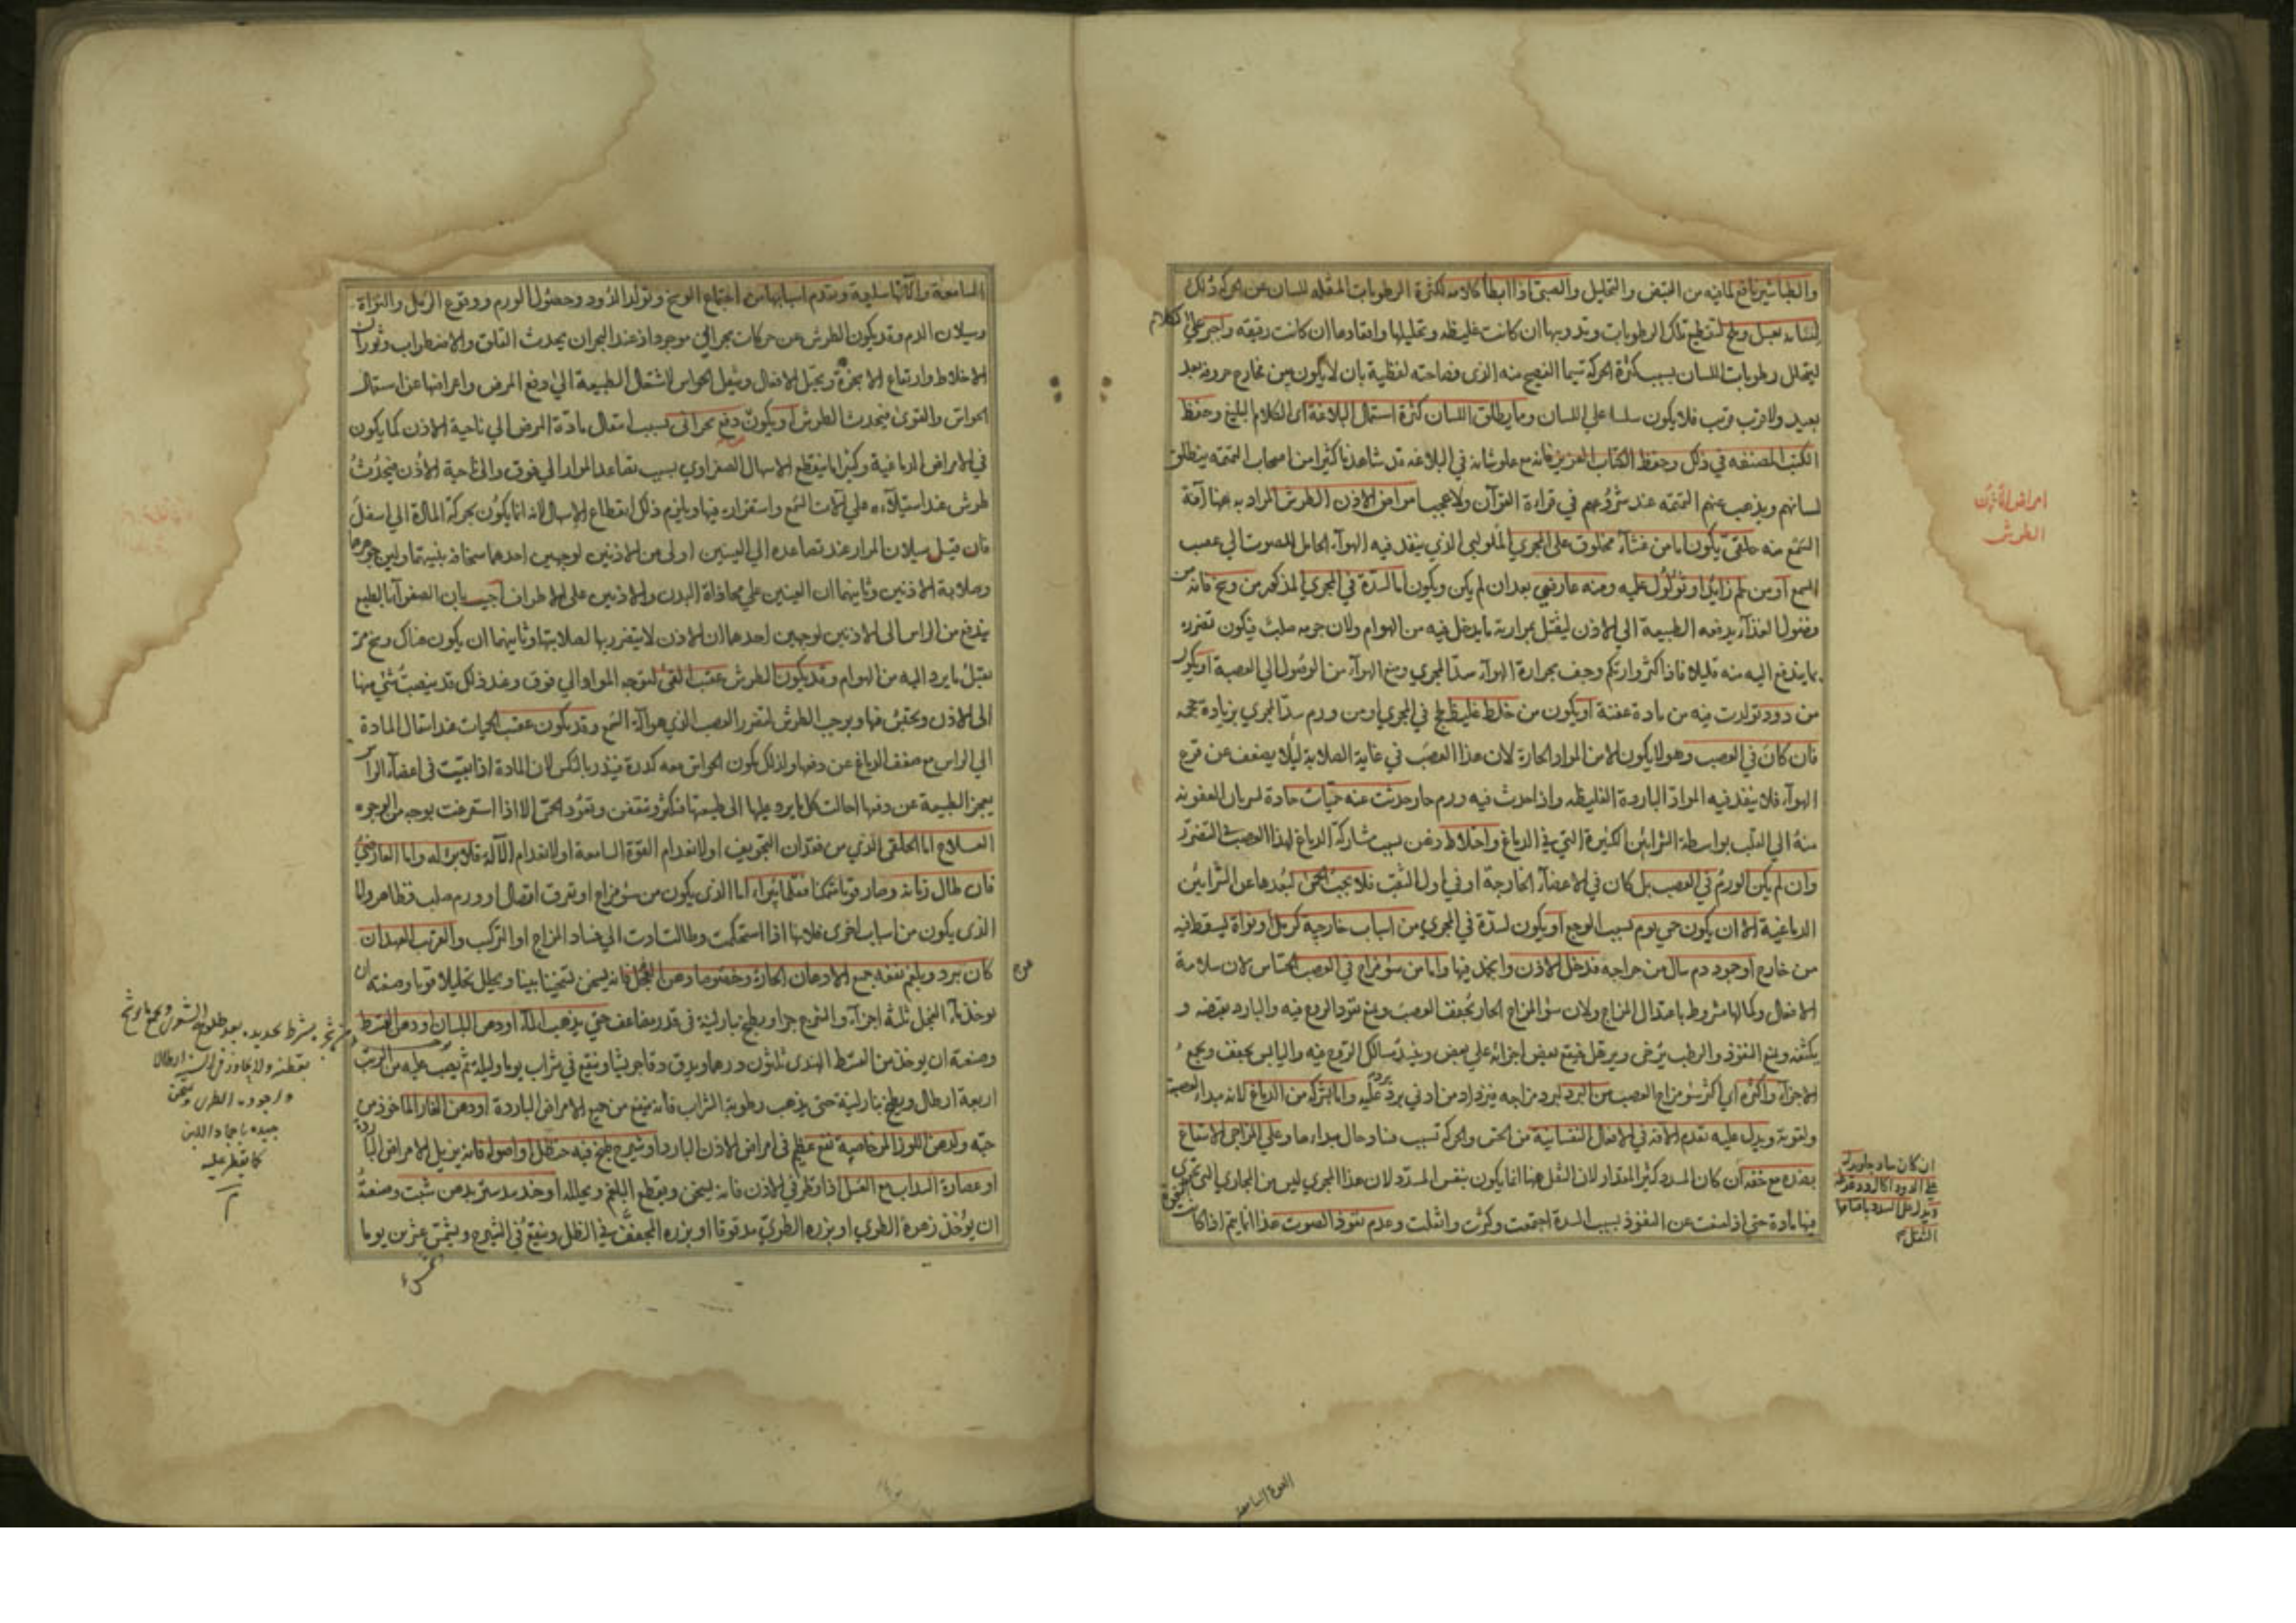 والطباشير نافع لما فيه من القبض والتحليل والصبي اذا ابطأ كلامه لكثرة الرطوبات المثقلة للسان عن الحركة دلك
لسانه بعسل وملح لتقطيع تلك الرطوبات وتذويبها ان كانت غليظه وتحليلها وافنادها ان كانت رقيقه واجبر علي الكلام
ليتحلل رطوبات اللسان بسبب كثرة الحركة سيما الفصيح منه الذى فصاحته لفظية بان لا يكون بين مخارج حروفه بعد
بعيد ولا قرب قريب فلا يكون سلسا علي اللسان ومما يطلق اللسان كثرة استعمال البلاغة اى الكلام البليغ وحفظ
الكتب المصنفه في ذلك وحفظ الكتاب العزيز فانه مع علو شانه في البلاغه قد شاهدنا كثيرا من اصحاب التمتمه ينطلق
لسانهم ويذهب عنهم التمتمه عند شروعهم في قراءة القرآن ولا عجب امراض الاذن الطرش المراد به ههنا آفة
السمع منه خلقي يكون اما من غشاء مخلوق على المجري الملولبى الذي ينفذ فيه الهواء الحامل للصوت الي عصب
السمع او من لحم زايد او ثؤلول عليه ومنه عارضي بعد ان لم يكن ويكون اما لسدة في المجري المذكور من وسخ فانه من
فضول الغذاء يدفعه الطبيعة الي الاذن ليقتل بمرارته ما يدخل فيه من الهوام ولان جرمه صلب فيكون تضرره
بما يندفع اليه منه قليلا فاذا كثر وارتكم وجف بحرارة الهواء سد المجري ومنع الهواء من الوصول الي العصبة او يكون
من دود تولدت فيه من مادة عفنة او يكون من خلط غليظ لحج في المجري او من ورم سد المجري بزيادة حجمه
فان كان في العصب وهو لا يكون الا من المواد الحارة لان هذا العصب في غاية الصلابة ليلا يضعف عن قرع
الهواء فلا ينفذ فيه المواد الباردة الغليظه واذا حدث فيه ورم حار حدثت عنه حميات حادة لسريان العفونه
منه الي القلب بواسطة الشرايين الكثيرة التي في الدماغ واختلاط ذهن بسبب مشاركة الدماغ لهذا العصب في التضرر
وان لم يكن الورم في العصب بل كان في الاعضاء الخارجة او في اول الثقب فلا يجب الحمى لبعدها عن الشرايين
الدماغية الا ان يكون حمى يوم بسبب الوجع او يكون لسدة في المجري من اسباب خارجية كرمل او نواة يسقط فيه
من خارج او جمود دم سال من جراحه فدخل الاذن وانجمد فيها واما من سوء مزاج في العصب الحساس لان سلامة
الافعال وكمالها مشروط باعتدال المزاج ولان سوء المزاج الحار يجفف العصب ويمنع نفوذ الروح فيه والبارد يقبضه و
يكثفه ويمنع النفوذ والرطب يرخى ويرهل فيقع بعض اجزائه علي بعض وينسد مسالك الروح فيه واليابس يجفف ويجمع
الاجزاء واكثره اي اكثر سوء مزاج العصب من البرد لبرد مزاجه فيزداد من ادني برد يرد عليه واما لشركة من الدماغ لانه مبداء لعصبه
ولقوته ويدل عليه تقدم الافة في الافعال النفسانية من الحس والحركة بسبب فساد حال مبداءها وعلي المراجي الاستماع
بضده مع خفة ان كان المسدد كثير المقدار لان الثقل ههنا انما يكون بنفس المسدد لان هذا المجري ليس من المجاري التي تجري
فيها مادة حتى اذا منعت عن النفوذ بسبب السدة اجتمعت وكثرت واثقلت وعدم نفوذ الصوت هذا انما يتم اذا كانت
امراض الاذن
الطرش
القوة السامعة
السامعة وآلاتها سليمة وبتقدم اسبابها من اجتماع الوسخ وتولد الدود وحصول الورم ووقوع الرمل والنواة
وسيلان الدم وقد يكون الطرش عن حركات بحرانية موجودة اذ عند البحران يحدث القلق والاضطراب وثوران
الاخلاط وارتفاع الابخرة ويختل الافعال ويثقل الحواس لاشتغال الطبيعة الي دفع المرض واعراضها عن استعمال
الحواس والقوى فيحدث الطرش او يكون دفع بحراني بسبب انتقال مادة المرض الي ناحية الاذن كما يكون
في الامراض الدماغية وكثيرا ما ينقطع الاسهال الصفراوي بسبب تصاعد المواد الي فوق والى ناحية الاذن فيحدث
طرش عند استيلائه علي آلات السمع واستقراره فيها ويلزم ذلك انقطاع الاسهال لانه انما يكون بحركة المادة الي اسفل
فان قيل سيلان المرار عند تصاعده الي العينين اولى من الاذنين لوجهين احدهما سخافة بنيتهما ولين جوهرهما
وصلابة الاذنين وثانيهما ان العينين علي محاذاة البدن والاذنين على الاطراف اجيب بان الصفراء بالطبع
يندفع من الراس الى الاذنين لوجهين احدهما ان الاذن لا يتضرر بها لصلابتها وثانيهما ان يكون هناك وسخ مر
يقتل ما يرد اليه من الهوام وقد يكون الطرش عقيب القئ لتوجه المواد الي فوق وعند ذلك قد ينصب شئ منها
الى الاذن ويحتبس فيها ويوجب الطرش لتضرر العصب الذي هو آلة السمع وقد يكون عقيب الحميات عند انتقال المادة
الي الراس مع ضعف الدماغ عن دفعها ولذلك يكون الحواس معه كدرة فينذر بالنكس لان المادة اذا بقيت في اعضاء الراس
يعجز الطبيعة عن دفعها احالت كل ما يرد عليها الى طبيعتها فتكثر وتتعفن وتعود الحمى الا اذا استفرغت بوجه من الوجوه
العلاج اما الخلقي الذي من فقدان التجويف او لانعدام القوة السامعة او لانعدام الآلة فلا برء له واما العارضي
فان طال زمانه وصار قويا متمكنا فقلما يبراء اما الذى يكون من سوء مزاج او تفرق اتصال او ورم صلب فظاهر واما
الذى يكون من اسباب اخرى فلانها اذا استحكمت وطالت ادت الي فساد المزاج او التركيب والقريب العهد ان
كان ببرد وبلغم نفعه جميع الادهان الحارة وخصوصا دهن الفجل فانه يسخن تسخينا بينا ويحلل تحليلا قويا وصفته ان
يوخذ ماء الفجل ثلثة اجزاء والشيرج جزء ويطبخ بنار لينة في قدر مضاعف حتى يذهب الماء او دهن البلسان او دهن القسط
وصفته ان يوخذ من القسط الهندى ثلثون درهما ويدق دقا جريشا وينقع في شراب يوما وليلة ثم يصب عليه من الزيت
اربعة ارطال ويطبخ بنار لينة حتى يذهب رطوبة الشراب فانه ينفع من جميع الامراض الباردة او دهن الغار الماخوذ من
حبه ولدهن اللوز المر خاصية نفع عظيم في امراض الاذن الباردة او شيرج طبخ فيه حنظل او اصوله فانه يزيل الامراض الباردة
او عصارة السداب مع العسل اذا قطر في الاذن فانه يسخن ويقطع البلغم ويحلله او جندبيدستر بدهن شبت وصنعته
ان يؤخذ زهرة الطري او بزره الطري مدقوقا او بزره المجفف في الظل وينقع في الشيرج ويشمس عشرين يوما